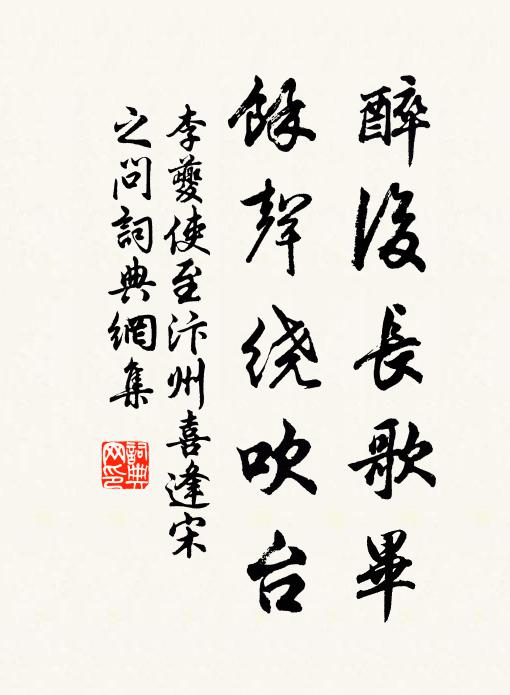 醉後長歌畢
餘聲绕吹台
李夔使至汴州喜逢宋
之問詞典網集
詞典
网印